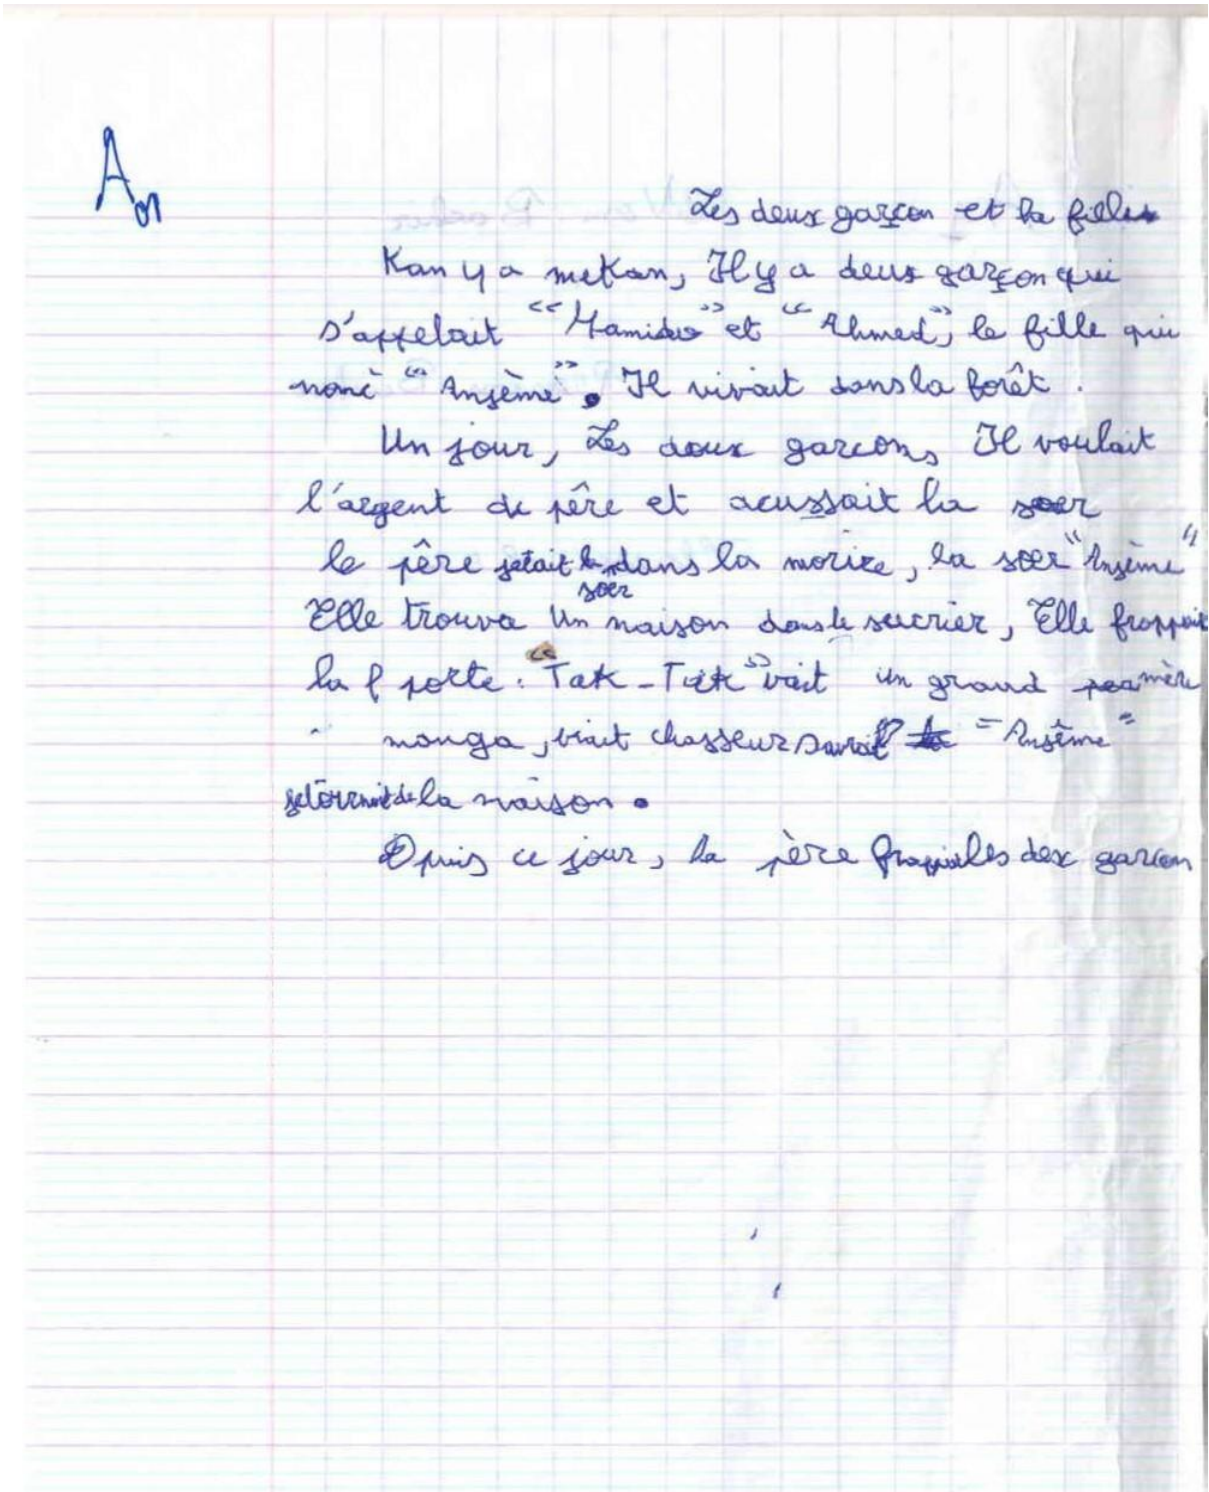 A01
Les deux garçon et la fille
Kan y a mekan, Il y a deux garçon qui
s'appelait "Hamido" et "Ahmed", le fille qui
nomé "Ansème". Il vivait dans la forêt.
Un jour, Les doux garcons Il voulait
l'argent de pêre et acussait la soer
le pêre jetait la dans la morice, la soer "Ansème"
soer
Elle trouva Un maison dans le sucrier, Elle frappait
la porte. "Tak-Tak" vait un grand mère
monga, viait chasseur "Ansême"
de la maison.
Dpuis ce jour, la père les dex garcon